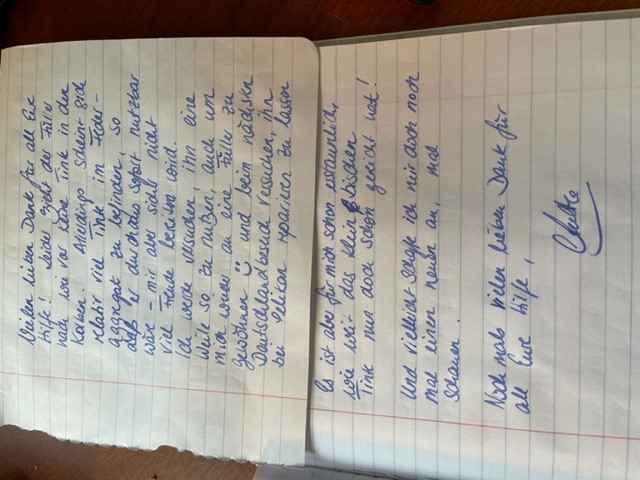 Vielen lieben Dank für all Eure
Hilfe! Leider zieht der Füller
nach wie vor keine Tinte in den
Kolben. Allerdings scheint sich
relativ viel Tinte im Feder-
aggregat zu befinden, so
daß er durchaus sofort nutzbar
wäre - mir aber sicher nicht
viel Freude bereiten wird.
Ich werde versuchen, ihn eine
Weile so zu nutzen, auch um
mich wieder an eine Füller zu
gewöhnen :) und beim nächsten
Deutschlandbesuch versuchen, ihn
bei Pelikan reparieren zu lassen
Es ist aber für mich schon erstaunlich,
wie weit das klein bischen
Tinte nun doch schon gereicht hat!
Und vielleicht schaffe ich mir doch noch
mal einen neuen an, mal
schauen.
Nochmals vielen lieben Dank für
all Eure Hilfe,